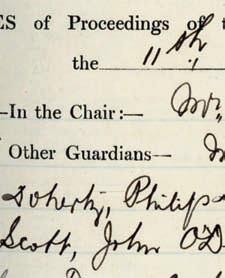 ES of Proceedings of t
the 11th
—In the Chair:— Mr.
Other Guardians—
Doherty, Philip
Scott, John O'D